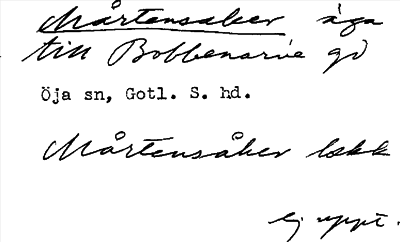 Mårtensåker äga
till Bobbenarve gd
Öja sn, Gotl. S. hd.
Mårtensåker lekk
ej uppt.